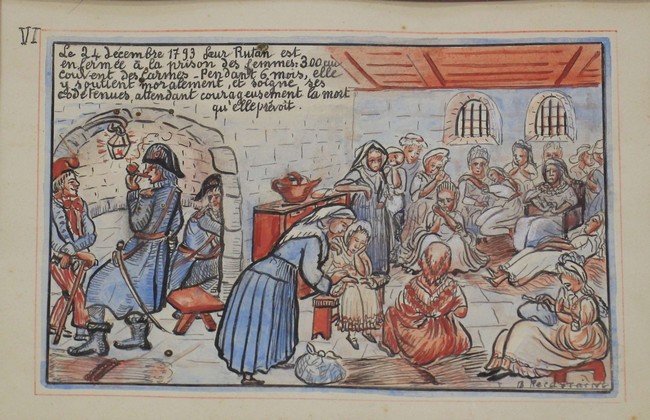 VI
Le 24 décembre 1793 Sœur Rutan est
enfermée à la prison des femmes: 300 au
couvent des Carmes - Pendant 6 mois, elle
y soutient moralement, et soigne ses
codétenues, attendant courageusement la mort
qu'elle prévoit.